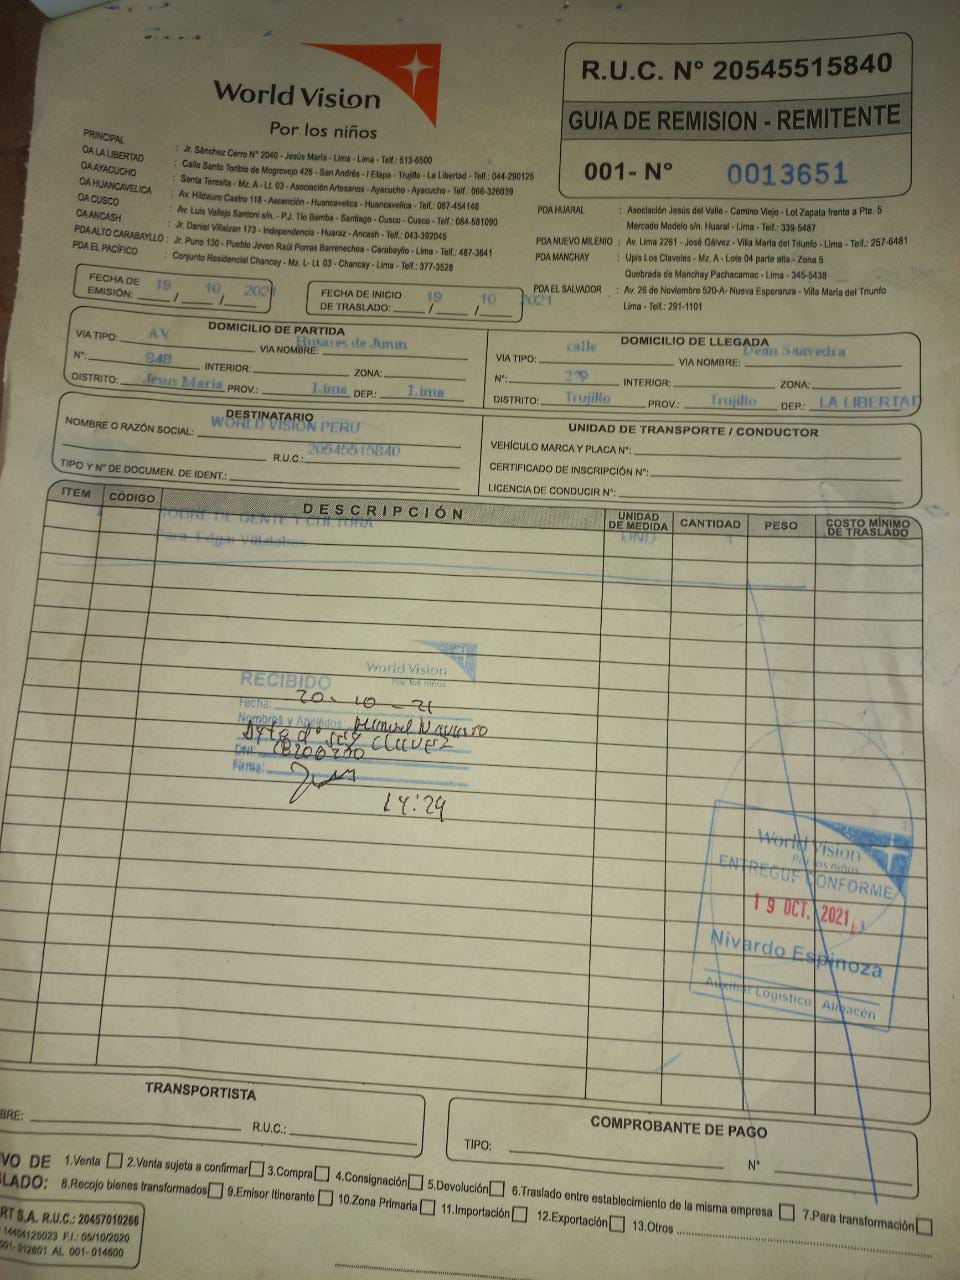 World Vision
Por los niños
R.U.C. N° 20545515840
GUIA DE REMISION - REMITENTE
001- N° 0013651
PRINCIPAL : Jr. Sánchez Cerro N° 2040 - Jesús María - Lima - Lima - Telf.: 513-6500
OA LA LIBERTAD : Calle Santo Toribio de Mogrovejo 426 - San Andrés - I Etapa - Trujillo - La Libertad - Telf.: 044-290125
OA AYACUCHO : Santa Teresita - Mz. A - Lt. 03 - Asociación Artesanos - Ayacucho - Ayacucho - Telf.: 066-326039
OA HUANCAVELICA : Av. Hildauro Castro 118 - Ascención - Huancavelica - Huancavelica - Telf.: 067-454148
OA CUSCO : Av. Luis Vallejo Santoni s/n. - P.J. Tío Bamba - Santiago - Cusco - Cusco - Telf.: 084-581090
OA ANCASH : Jr. Daniel Villaizan 173 - Independencia - Huaraz - Ancash - Telf.: 043-392045
PDA ALTO CARABAYLLO : Jr. Puno 130 - Pueblo Joven Raúl Porras Barrenechea - Carabayllo - Lima - Telf.: 487-3641
PDA EL PACÍFICO : Conjunto Residencial Chancay - Mz. L- Lt. 03 - Chancay - Lima - Telf.: 377-3528
PDA HUARAL : Asociación Jesús del Valle - Camino Viejo - Lot Zapata frente a Pte. 5
Mercado Modelo s/n. Huaral - Lima - Telf.: 339-5487
PDA NUEVO MILENIO : Av. Lima 2261 - José Gálvez - Villa María del Triunfo - Lima - Telf.: 257-6481
PDA MANCHAY : Upis Los Claveles - Mz. A - Lote 04 parte alta - Zona 5
Quebrada de Manchay Pachacamac - Lima - 345-5438
PDA EL SALVADOR : Av. 26 de Noviembre 520-A- Nueva Esperanza - Villa María del Triunfo
Lima - Telf.: 291-1101
FECHA DE EMISIÓN: 19 / 10 / 2021
FECHA DE INICIO DE TRASLADO: 19 / 10 / 2021
DOMICILIO DE PARTIDA
VIA TIPO: AV VIA NOMBRE: Husares de Junin
N°: 848 INTERIOR: ZONA:
DISTRITO: Jesus Maria PROV.: Lima DEP.: Lima
DOMICILIO DE LLEGADA
VIA TIPO: calle VIA NOMBRE: Dean Saavedra
N°: 279 INTERIOR: ZONA:
DISTRITO: Trujillo PROV.: Trujillo DEP.: LA LIBERTAD
DESTINATARIO
NOMBRE O RAZÓN SOCIAL: WORLD VISION PERU
R.U.C.: 20545515840
TIPO Y N° DE DOCUMEN. DE IDENT.:
UNIDAD DE TRANSPORTE / CONDUCTOR
VEHÍCULO MARCA Y PLACA N°:
CERTIFICADO DE INSCRIPCIÓN N°:
LICENCIA DE CONDUCIR N°:
ITEM CÓDIGO DESCRIPCIÓN UNIDAD DE MEDIDA CANTIDAD PESO COSTO MÍNIMO DE TRASLADO
1 SOBRE DE GENTE Y CULTURA UND 1
Para: Edgar Villalobos
World Vision
Por los niños
RECIBIDO
Fecha: 20-10-21
Nombres y Apellidos: Manuel Navarro
DNI: 18200700
Firma:
14:29
World Vision
Por los niños
ENTREGUE CONFORME
19 OCT. 2021
Nivardo Espinoza
Auxiliar Logístico Almacén
TRANSPORTISTA
BRE: R.U.C.:
COMPROBANTE DE PAGO
TIPO: N°
VO DE 1.Venta 2.Venta sujeta a confirmar 3.Compra 4.Consignación 5.Devolución 6.Traslado entre establecimiento de la misma empresa 7.Para transformación
SLADO: 8.Recojo bienes transformados 9.Emisor Itinerante 10.Zona Primaria 11.Importación 12.Exportación 13.Otros
RT S.A. R.U.C.: 20457010266
14404125023 F.I.: 05/10/2020
001- 012601 AL 001- 014600